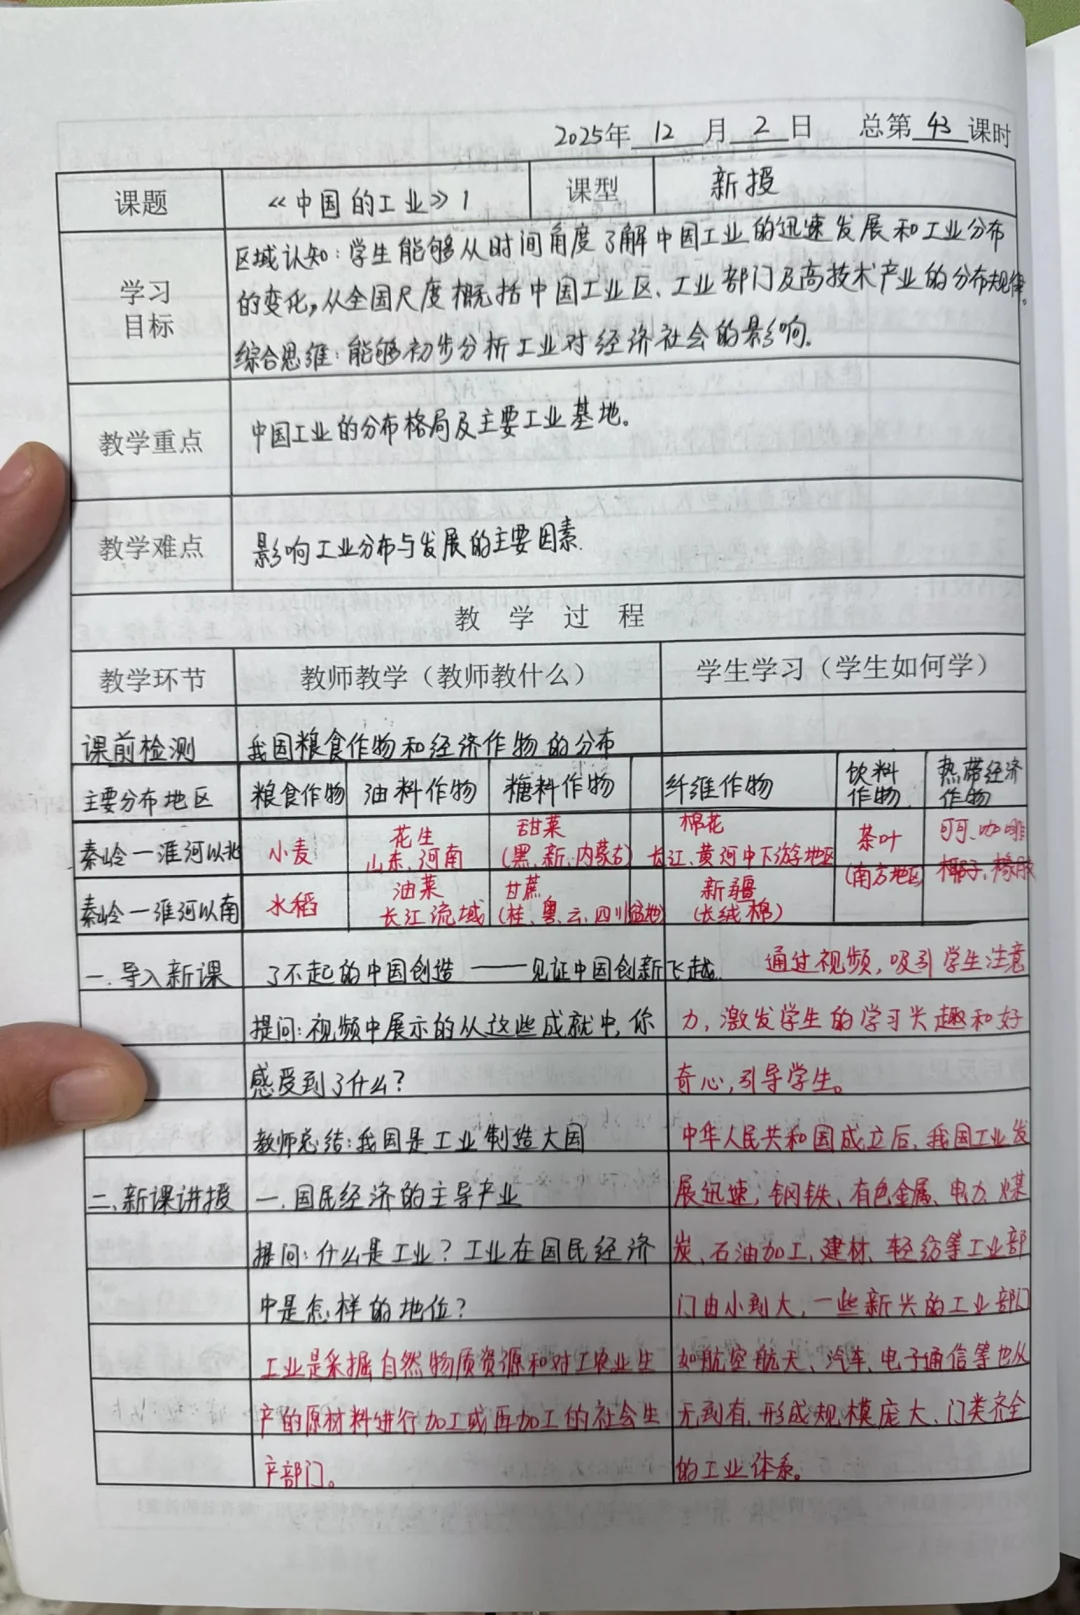 2025年 12 月 2 日 总第 43 课时
课题 《中国的工业》1 课型 新授
学习目标
区域认知：学生能够从时间角度了解中国工业的迅速发展和工业分布
的变化，从全国尺度概括中国工业区、工业部门及高技术产业的分布规律。
综合思维：能够初步分析工业对经济社会的影响。
教学重点 中国工业的分布格局及主要工业基地。
教学难点 影响工业分布与发展的主要因素.
教 学 过 程
教学环节 教师教学（教师教什么） 学生学习（学生如何学）
课前检测 我国粮食作物和经济作物的分布
主要分布地区 粮食作物 油料作物 糖料作物 纤维作物 饮料作物 热带经济作物
秦岭一淮河以北 小麦 花生 山东、河南 甜菜 (黑、新、内蒙古) 棉花 长江、黄河中下游地区 茶叶 (南方地区) 可可、咖啡 椰子、橡胶
秦岭一淮河以南 水稻 油菜 长江流域 甘蔗 (桂、粤、云、四川盆地) 新疆 (长绒棉)
一.导入新课 了不起的中国创造 ——见证中国创新飞越. 通过视频，吸引学生注意
提问：视频中展示的从这些成就中，你 力，激发学生的学习兴趣和好
感受到了什么？ 奇心，引导学生。
教师总结：我国是工业制造大国 中华人民共和国成立后，我国工业发
二.新课讲授 一.国民经济的主导产业 展迅速，钢铁、有色金属、电力、煤
提问：什么是工业？工业在国民经济 炭、石油加工、建材、轻纺等工业部
中是怎样的地位？ 门由小到大，一些新兴的工业部门
工业是采掘自然物质资源和对工农业生 如航空航天、汽车、电子通信等也从
产的原材料进行加工或再加工的社会生 无到有，形成规模庞大、门类齐全
产部门。 的工业体系。